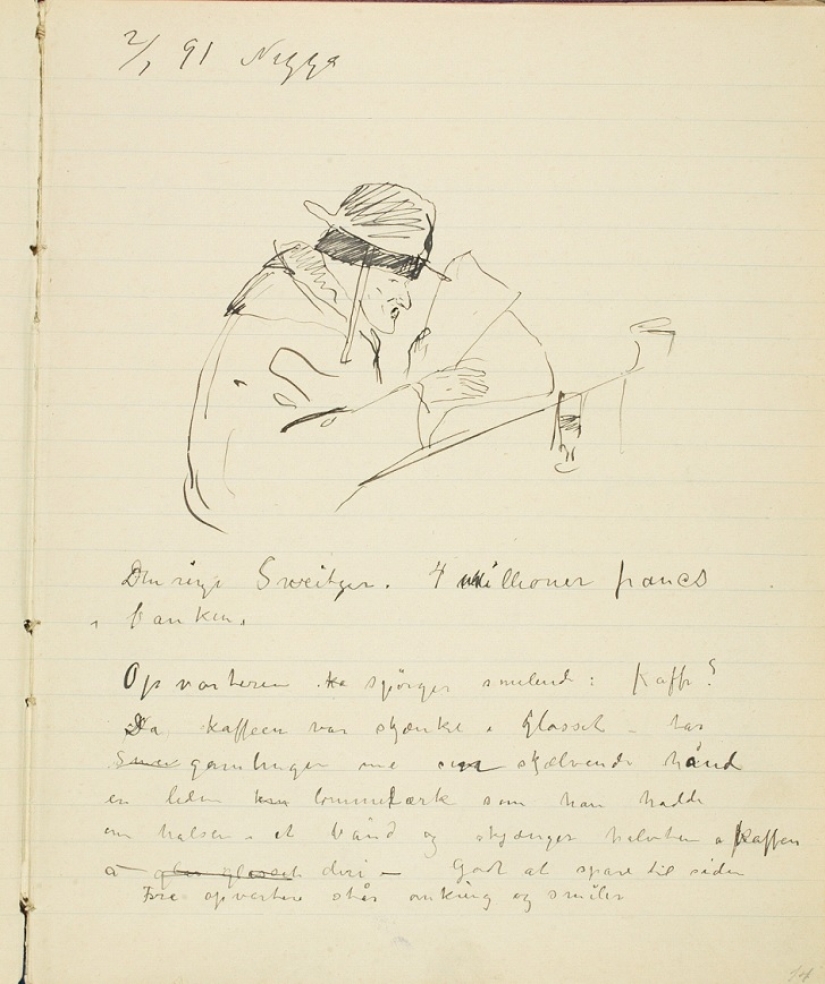 2/1 91 Nizza
Den rige Sweitzer. 4 millioner francs
i banken.
Opvarteren ha spörger smilend: Kaffe?
Da kaffeen var skjænke i Glasset – tar
gamlingen me sin skjælvende hånd
en liden lommelærk som han hadde
om halsen i et bånd og skjænger halvten a kaffen
a glas glasset deri – Godt at spare til siden
Tre opvartere står omkring og smiler
14